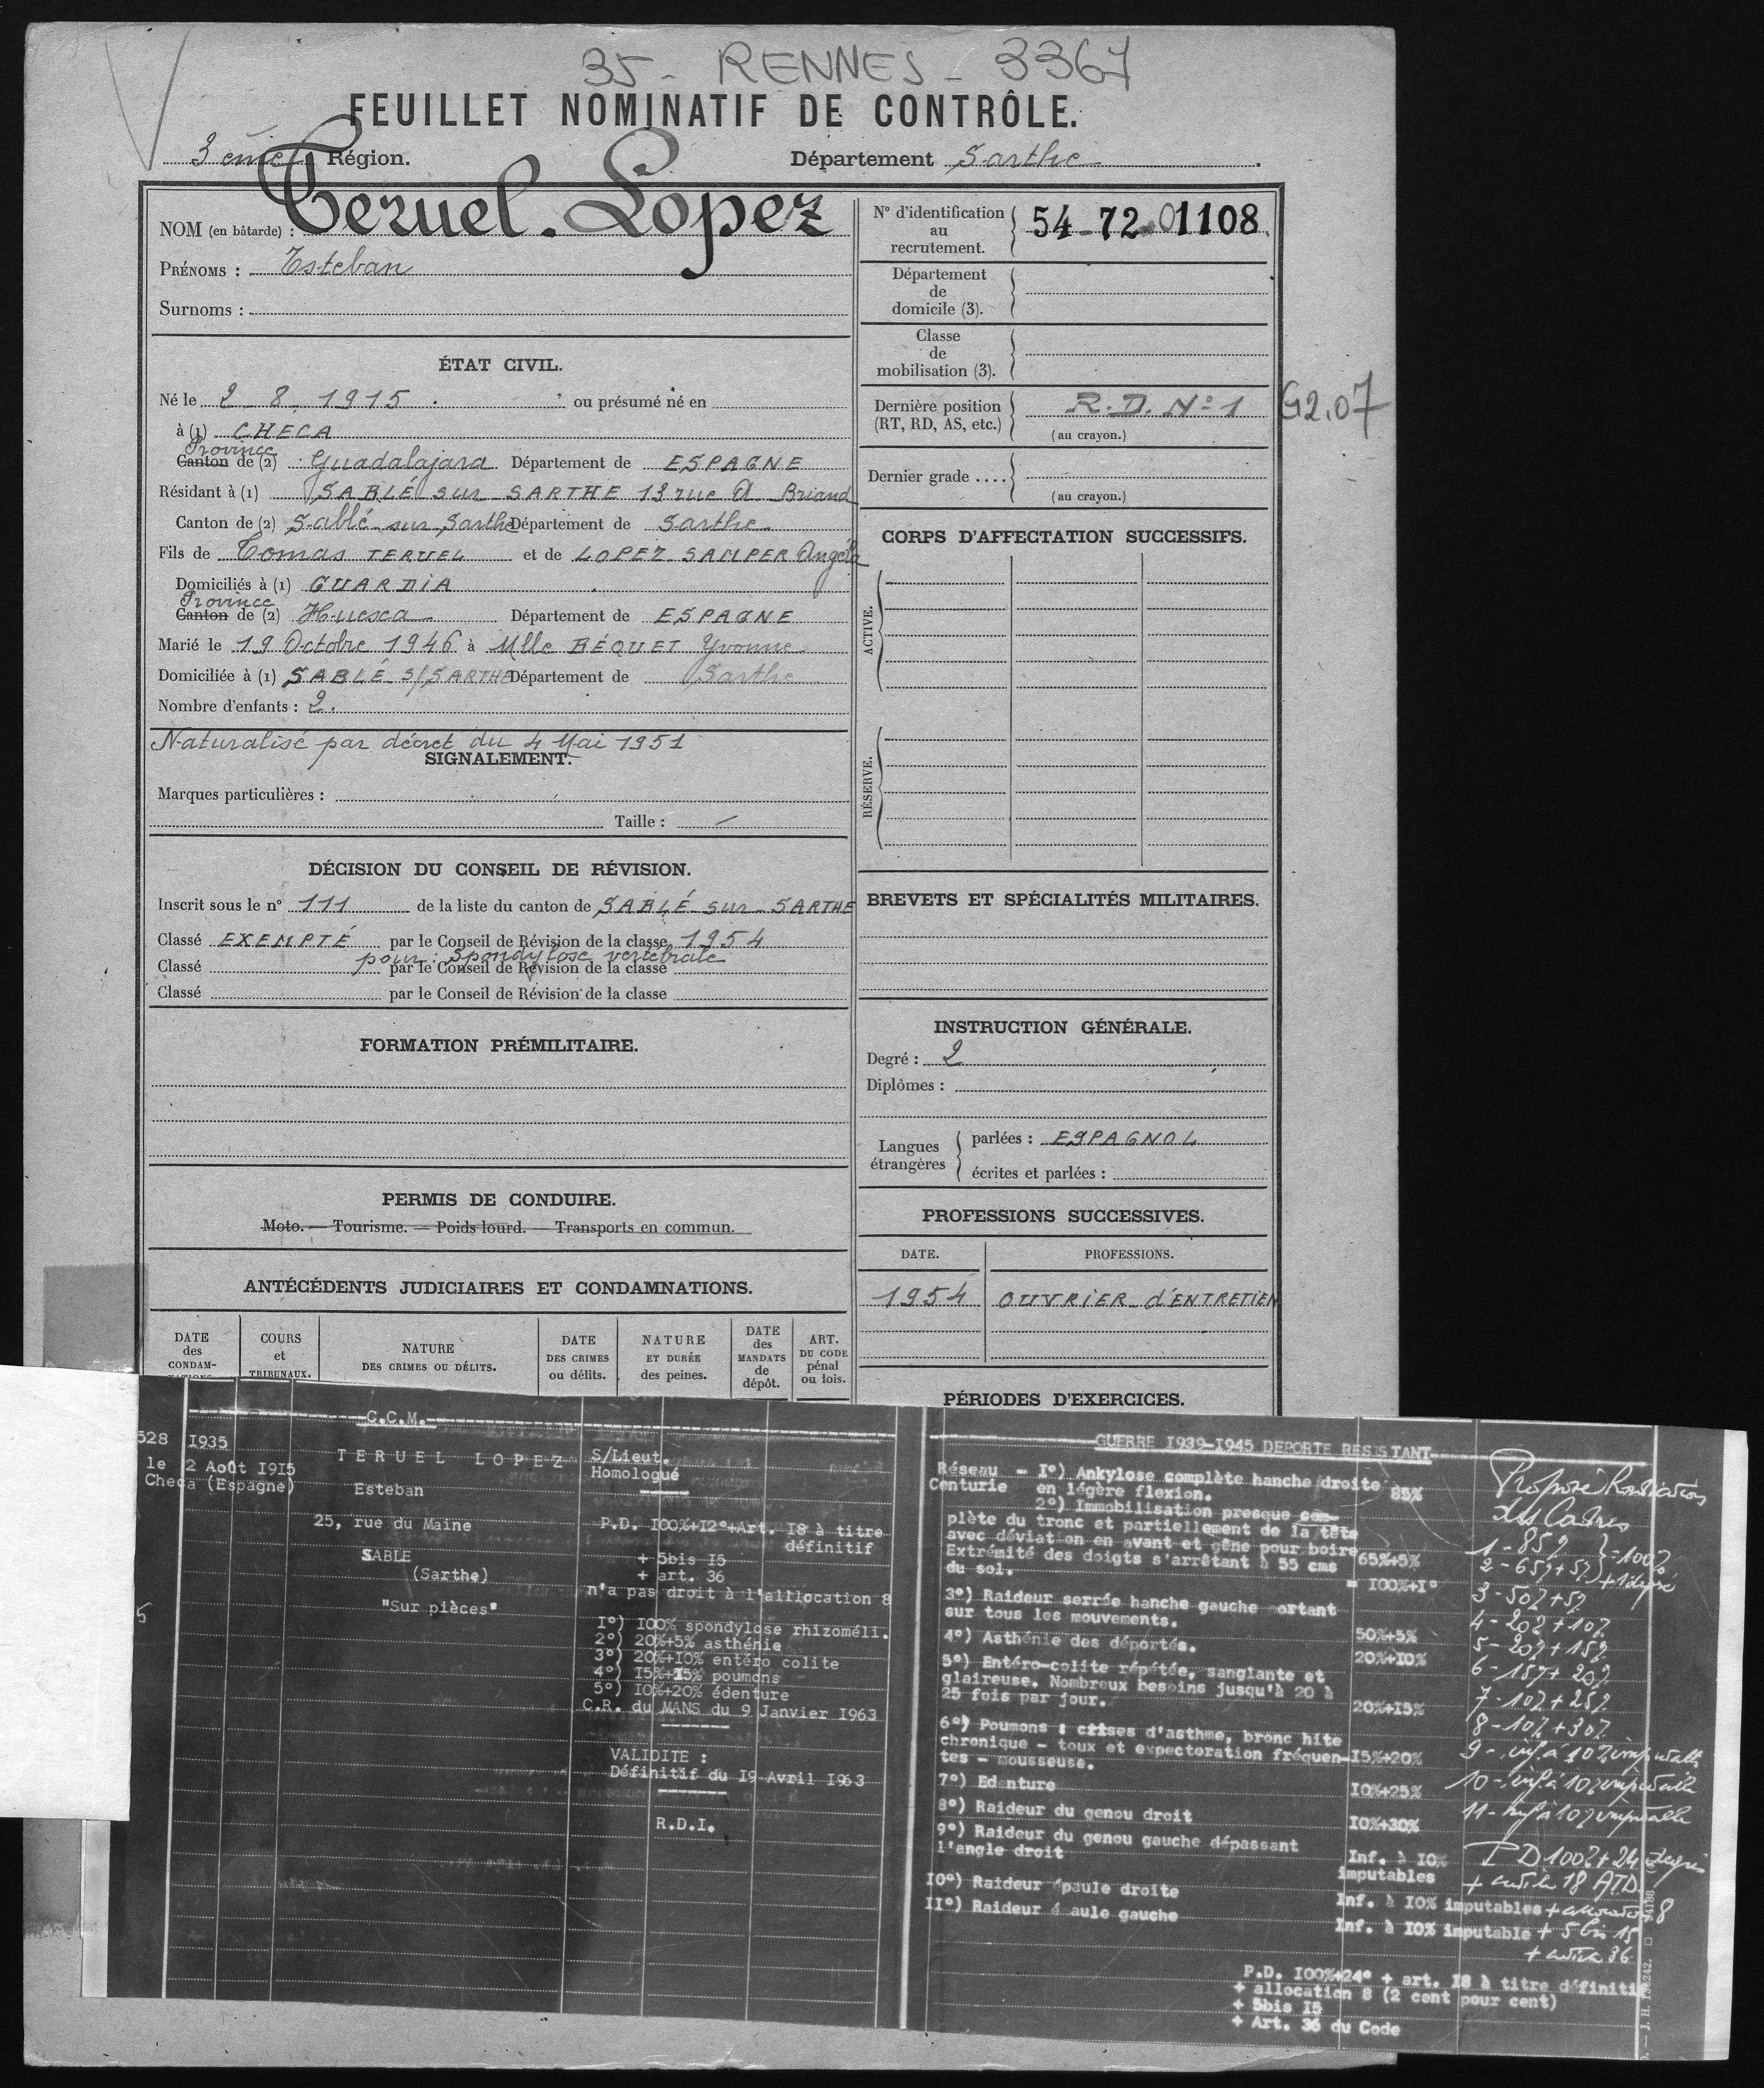 35 - RENNES - 3367
FEUILLET NOMINATIF DE CONTRÔLE.
3 ème Région. Département Sarthe
NOM (en bâtarde) : Teruel-Lopez
PRÉNOMS : Esteban
Surnoms :
ÉTAT CIVIL.
Né le 2-8-1915. ou présumé né en
à (1) CHECA
Province
Canton de (2) Guadalajara Département de ESPAGNE
Résidant à (1) SABLÉ sur SARTHE 13 rue A. Briand
Canton de (2) Sablé-sur-Sarthe Département de Sarthe
Fils de Tomas TERUEL et de LOPEZ SAMPER Angéla
Domiciliés à (1) GUARDIA
Province
Canton de (2) Huesca Département de ESPAGNE
Marié le 19 Octobre 1946 à Mlle BÉQUET Yvonne
Domiciliée à (1) SABLÉ S/SARTHE Département de Sarthe
Nombre d'enfants : 2.
Naturalisé par décret du 4 Mai 1951
SIGNALEMENT.
Marques particulières :
Taille : —
DÉCISION DU CONSEIL DE RÉVISION.
Inscrit sous le n° 111 de la liste du canton de SABLÉ-sur-SARTHE
Classé EXEMPTÉ par le Conseil de Révision de la classe 1954
pour : spondylose vertébrale
Classé par le Conseil de Révision de la classe
Classé par le Conseil de Révision de la classe
FORMATION PRÉMILITAIRE.
PERMIS DE CONDUIRE.
Moto. — Tourisme. — Poids lourd. — Transports en commun.
ANTÉCÉDENTS JUDICIAIRES ET CONDAMNATIONS.
DATE des CONDAM-NATIONS
COURS et TRIBUNAUX.
NATURE DES CRIMES OU DÉLITS.
DATE DES CRIMES ou délits.
NATURE ET DURÉE des peines.
DATE des MANDATS de dépôt.
ART. DU CODE pénal ou lois.
N° d'identification au recrutement. 54-72-01108
Département de domicile (3).
Classe de mobilisation (3).
Dernière position (RT, RD, AS, etc.) R.D. N°1 G2.07
(au crayon.)
Dernier grade ....
(au crayon.)
CORPS D'AFFECTATION SUCCESSIFS.
ACTIVE.
RÉSERVE.
BREVETS ET SPÉCIALITÉS MILITAIRES.
INSTRUCTION GÉNÉRALE.
Degré : 2
Diplômes :
Langues étrangères
parlées : ESPAGNOL
écrites et parlées :
PROFESSIONS SUCCESSIVES.
DATE. PROFESSIONS.
1954 OUVRIER d'ENTRETIEN
PÉRIODES D'EXERCICES.
C.C.M.
528 I935
le 2 Août I9I5
Checa (Espagne)
5
TERUEL LOPEZ
Esteban
25, rue du Maine
SABLE
(Sarthe)
"Sur pièces"
S/Lieut.
Homologué
P.D. I00%+I2°+Art. I8 à titre
définitif
+ 5bis I5
+ art. 36
n'a pas droit à l'alllocation 8
I°) I00% spondylose rhizoméli.
2°) 20%+5% asthénie
3°) 20%+I0% entéro colite
4°) I5%+I5% poumons
5°) I0%+20% édenture
C.R. du MANS du 9 Janvier I963
VALIDITE :
Définitif du I9 Avril I963
R.D.I.
GUERRE I939-I945 DEPORTE RESISTANT
Réseau
Centurie
- I°) Ankylose complète hanche droite
en légère flexion. 85%
2°) Immobilisation presque com-
plète du tronc et partiellement de la tête
avec déviation en avant et gêne pour boire
Extrémité des doigts s'arrêtant à 55 cms 65%+5%
du sol. = I00%+I°
3°) Raideur serrée hanche gauche portant
sur tous les mouvements. 50%+5%
4°) Asthénie des déportés. 20%+I0%
5°) Entéro-colite répétée, sanglante et
glaireuse. Nombreux besoins jusqu'à 20 à
25 fois par jour. 20%+I5%
6°) Poumons : crises d'asthme, bronc hite
chronique - toux et expectoration fréquen-
tes - mousseuse. I5%+20%
7°) Edenture I0%+25%
8°) Raideur du genou droit I0%+30%
9°) Raideur du genou gauche dépassant
l'angle droit Inf. à I0%
imputables
I0°) Raideur épaule droite Inf. à I0% imputables
II°) Raideur é aule gauche Inf. à I0% imputable
P.D. I00%+24° + art. I8 à titre définitif
+ allocation 8 (2 cent pour cent)
+ 5bis I5
+ Art. 36 du Code
des Cadres
1 - 85% } = 100%
2 - 65% + 5% } + 1 degré
3 - 50% + 5%
4 - 20% + 10%
5 - 20% + 15%
6 - 15% + 20%
7 - 10% + 25%
8 - 10% + 30%
9 - inf. à 10% imputable
10 - inf. à 10% imputable
11 - inf à 10% imputable
P D 100% + 24 degrés
+ article 18 ATD
+ allocation 8
+ 5 bis 15
+ article 36